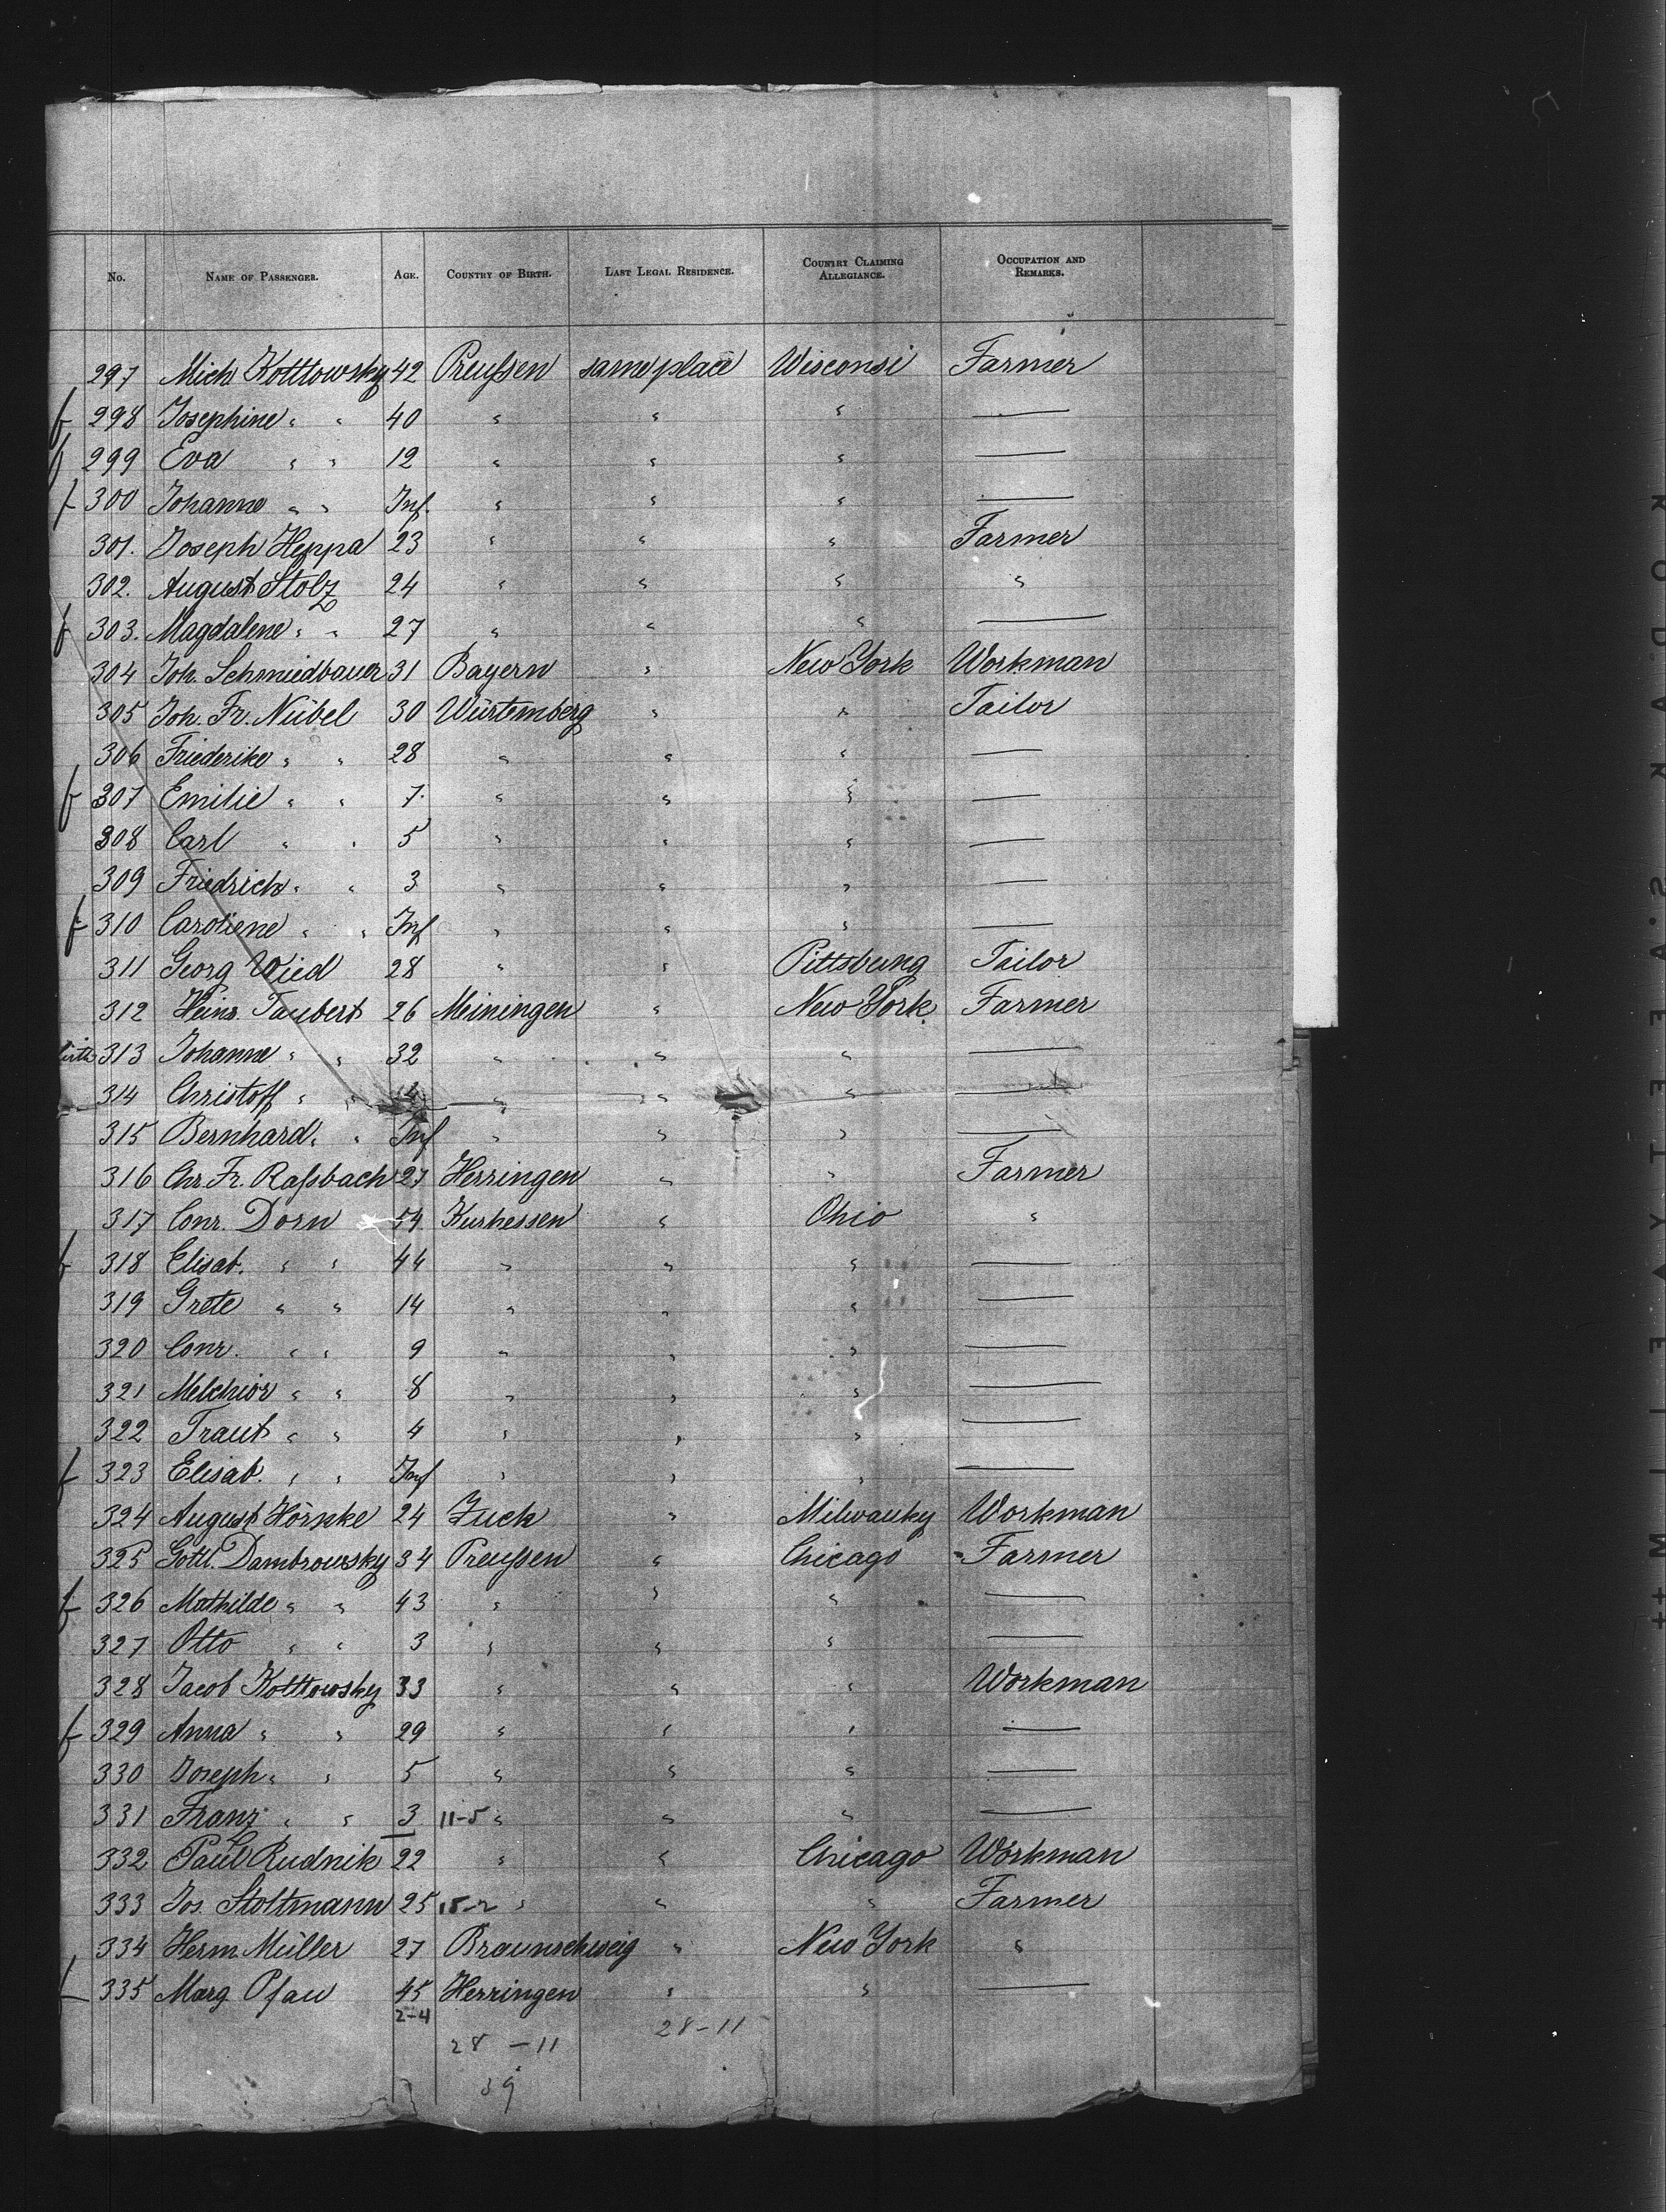 No. NAME OF PASSENGER. AGE. COUNTRY OF BIRTH. LAST LEGAL RESIDENCE. COUNTRY CLAIMING ALLEGIANCE. OCCUPATION AND REMARKS.
297 Mich Kottowsky 42 Preußen same place Wisconsi Farmer
f 298 Josephine " " 40 " " " —
f 299 Eva " " 12 " " " —
f 300 Johanne " " Inf. " " " —
301. Joseph Heppa 23 " " " Farmer
302. August Stolz 24 " " " "
f 303. Magdalene " " 27 " " " —
304 Joh. Schmiedbauer 31 Bayern " New York Workman
305 Joh. Fr. Nübel 30 Würtemberg " " Tailor
306 Friederike " " 28 " " " —
f 307 Emilie " " 7. " " " —
308 Carl " " 5 " " " —
309 Friedrich " " 3 " " " —
f 310 Caroliene " " Inf " " " —
311 Georg Wied 28 " " Pittsburg Tailor
312 Heinr. Taubert 26 Meiningen " New York Farmer
313 Johanne " " 32 " " " —
314 Christoff " " " " " —
315 Bernhard " " Inf " " " —
316 Chr. Fr. Raßbach 27 Herringen " " Farmer
317 Conr. Dorn 54 Kurhessen " Ohio "
f 318 Elisab. " " 44 " " " —
319 Grete " " 14 " " " —
320 Conr. " " 9 " " " —
321 Melchior " " 8 " " " —
322 Traut " " 4 " " " —
f 323 Elisab. " " Inf " " " —
324 August Hörnke 24 Zuch " Milwauky Workman
325 Gottl. Dambrowsky 34 Preußen " Chicago Farmer
f 326 Mathilde " " 43 " " " —
327 Otto " " 3 " " " —
328 Jacob Kottowsky 33 " " " Workman
f 329 Anna " " 29 " " " —
330 Joseph " " 5 " " " —
331 Franz " " 3 11-5 " " " —
332 Paul Rudnik 22 " " Chicago Workman
333 Jos. Stoltmann 25 15-2 " " " Farmer
334 Herm. Müller 27 Braunschweig " New York "
335 Marg. Pfau 45 Herringen " " —
2-4
28-11 28-11
39